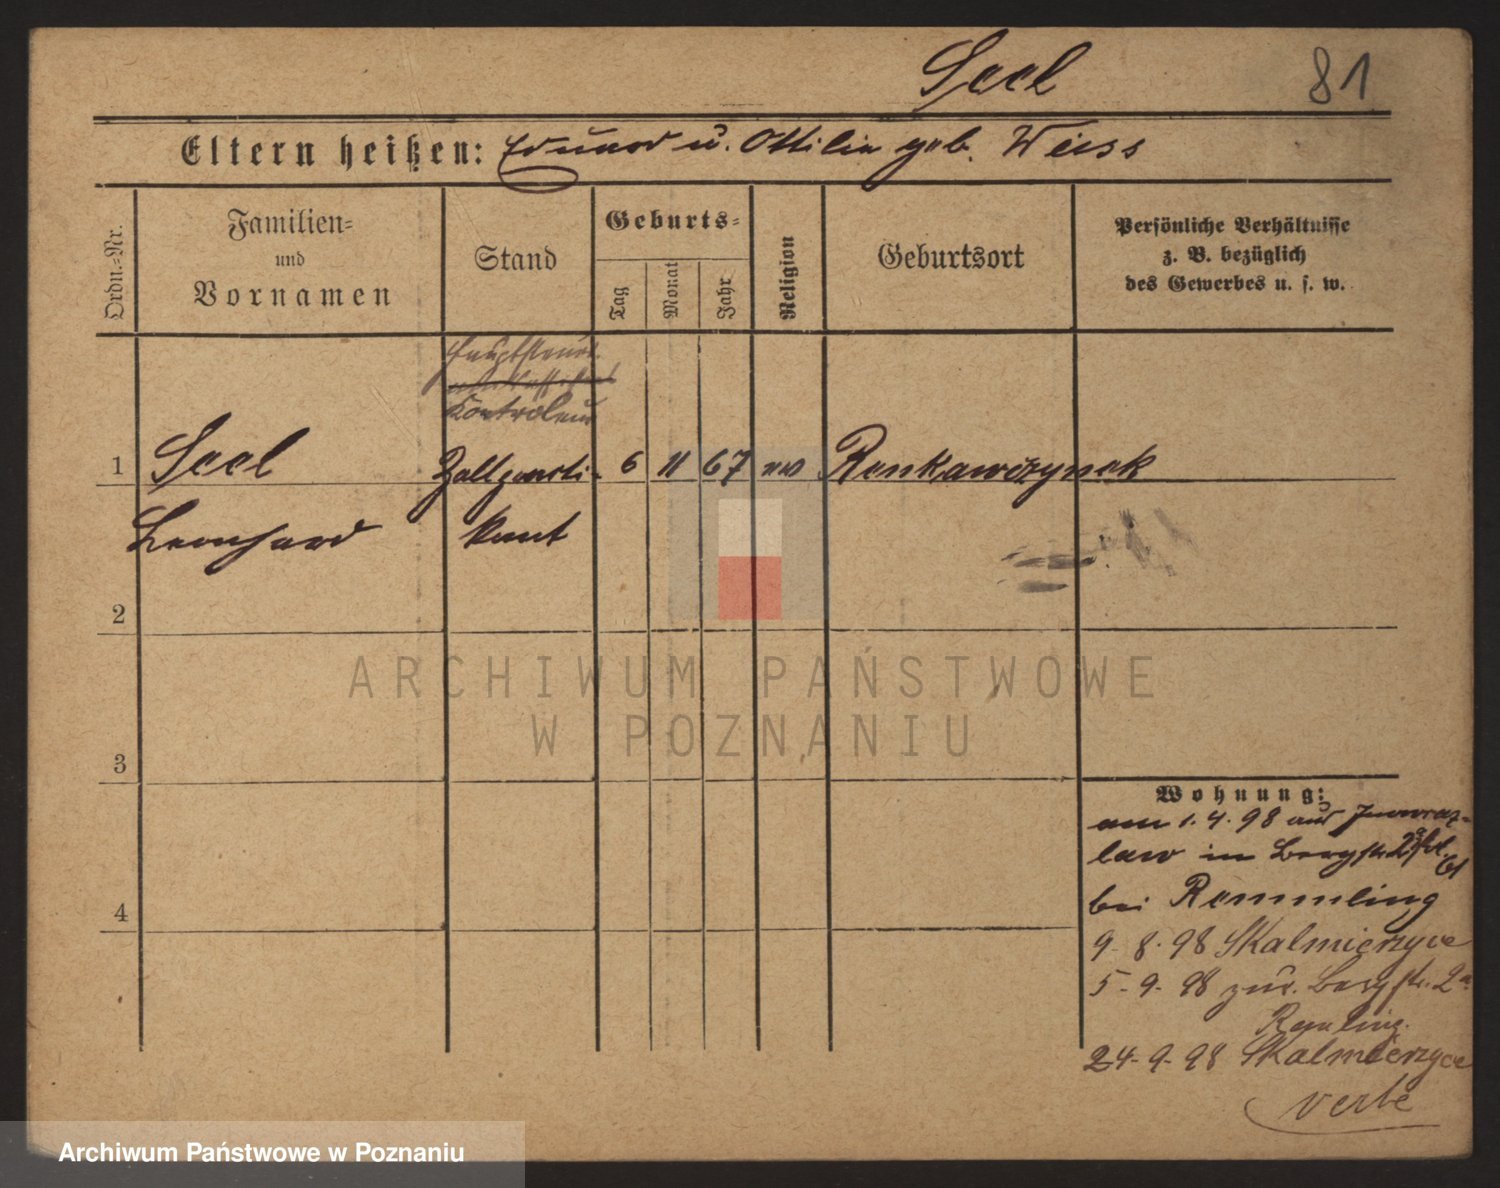 Seel
81
Eltern heißen: Eduard u. Ottilie geb. Weiss
Ordn.-Nr.
Familien-
und
Vornamen
Stand
Geburts-
Tag
Monat
Jahr
Religion
Geburtsort
Persönliche Verhältnisse
z. B. bezüglich
des Gewerbes u. s. w.
Hauptsteuer
Kontroleur
1 Seel Zollprakti- 6 11 67 ev
Leonhard kant
2
3
4
Wohnung:
am 1.4.98 aus Inowraz-
law in Bergstr. 2a
bei Remmling
9.8.98 Skalmierzyce
5.9.98 zur. Bergstr. 2a
Remling
24.9.98 Skalmierzyce
verte
ARCHIWUM PAŃSTWOWE
W POZNANIU
Archiwum Państwowe w Poznaniu